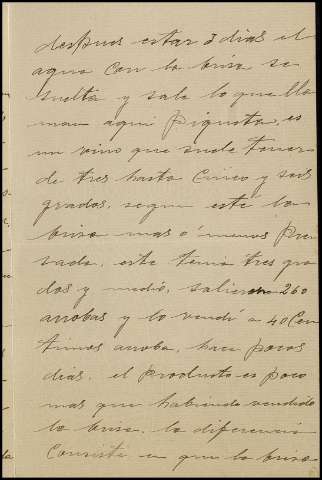 despues estar 3 dias el
agua con la brisa se
suelta y sale lo que lla
man aqui Piqueta, es
un vino que suele tener
de tres hasta Cinco y seis
grados, segun esté la
brisa mas o menos Pren
sada, este tenia tres gra
dos y medio, salieron 260
arrobas y lo vendí a 40 Cen
timos arroba, hace pocos
dias, el producto es poco
mas que habiendo vendido
la brisa, la diferencia
Consiste en que la brisa